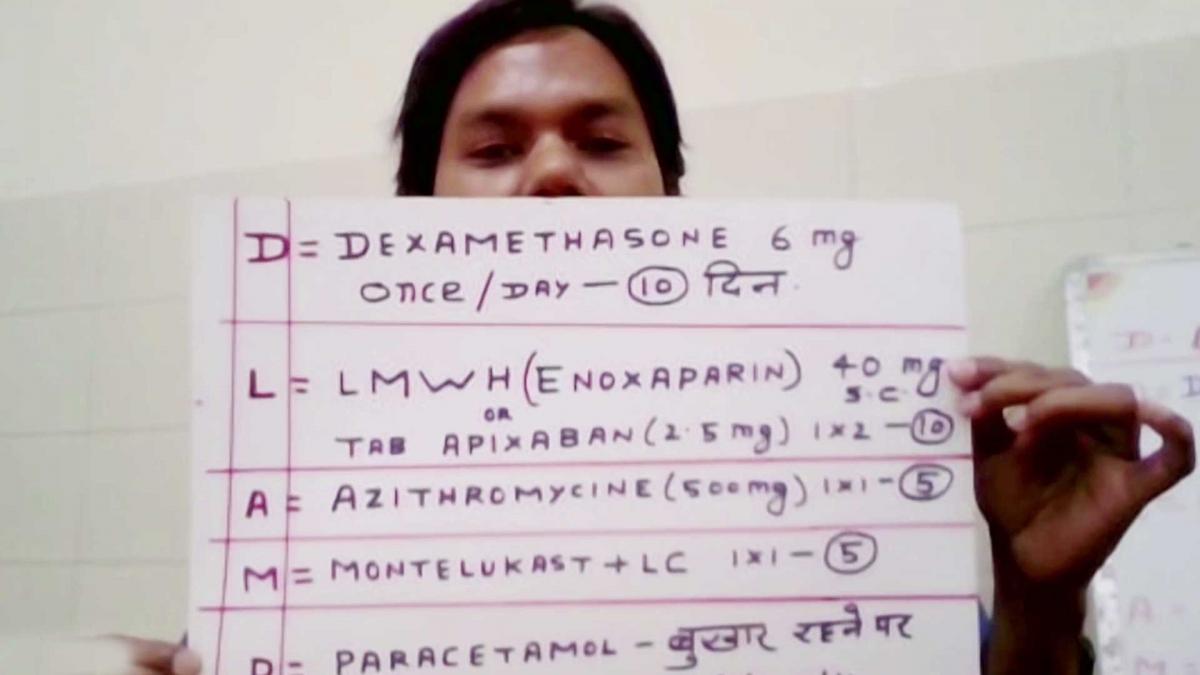 D = DEXAMETHASONE 6 mg
once/DAY – 10 दिन.
L = LMWH (ENOXAPARIN) 40 mg
OR S.C.
TAB APIXABAN (2.5 mg) 1x2 – 10
A = AZITHROMYCINE (500mg) 1x1 – 5
M = MONTELUKAST + LC 1x1 – 5
P = PARACETAMOL – बुखार रहने पर
D -
A -
M =